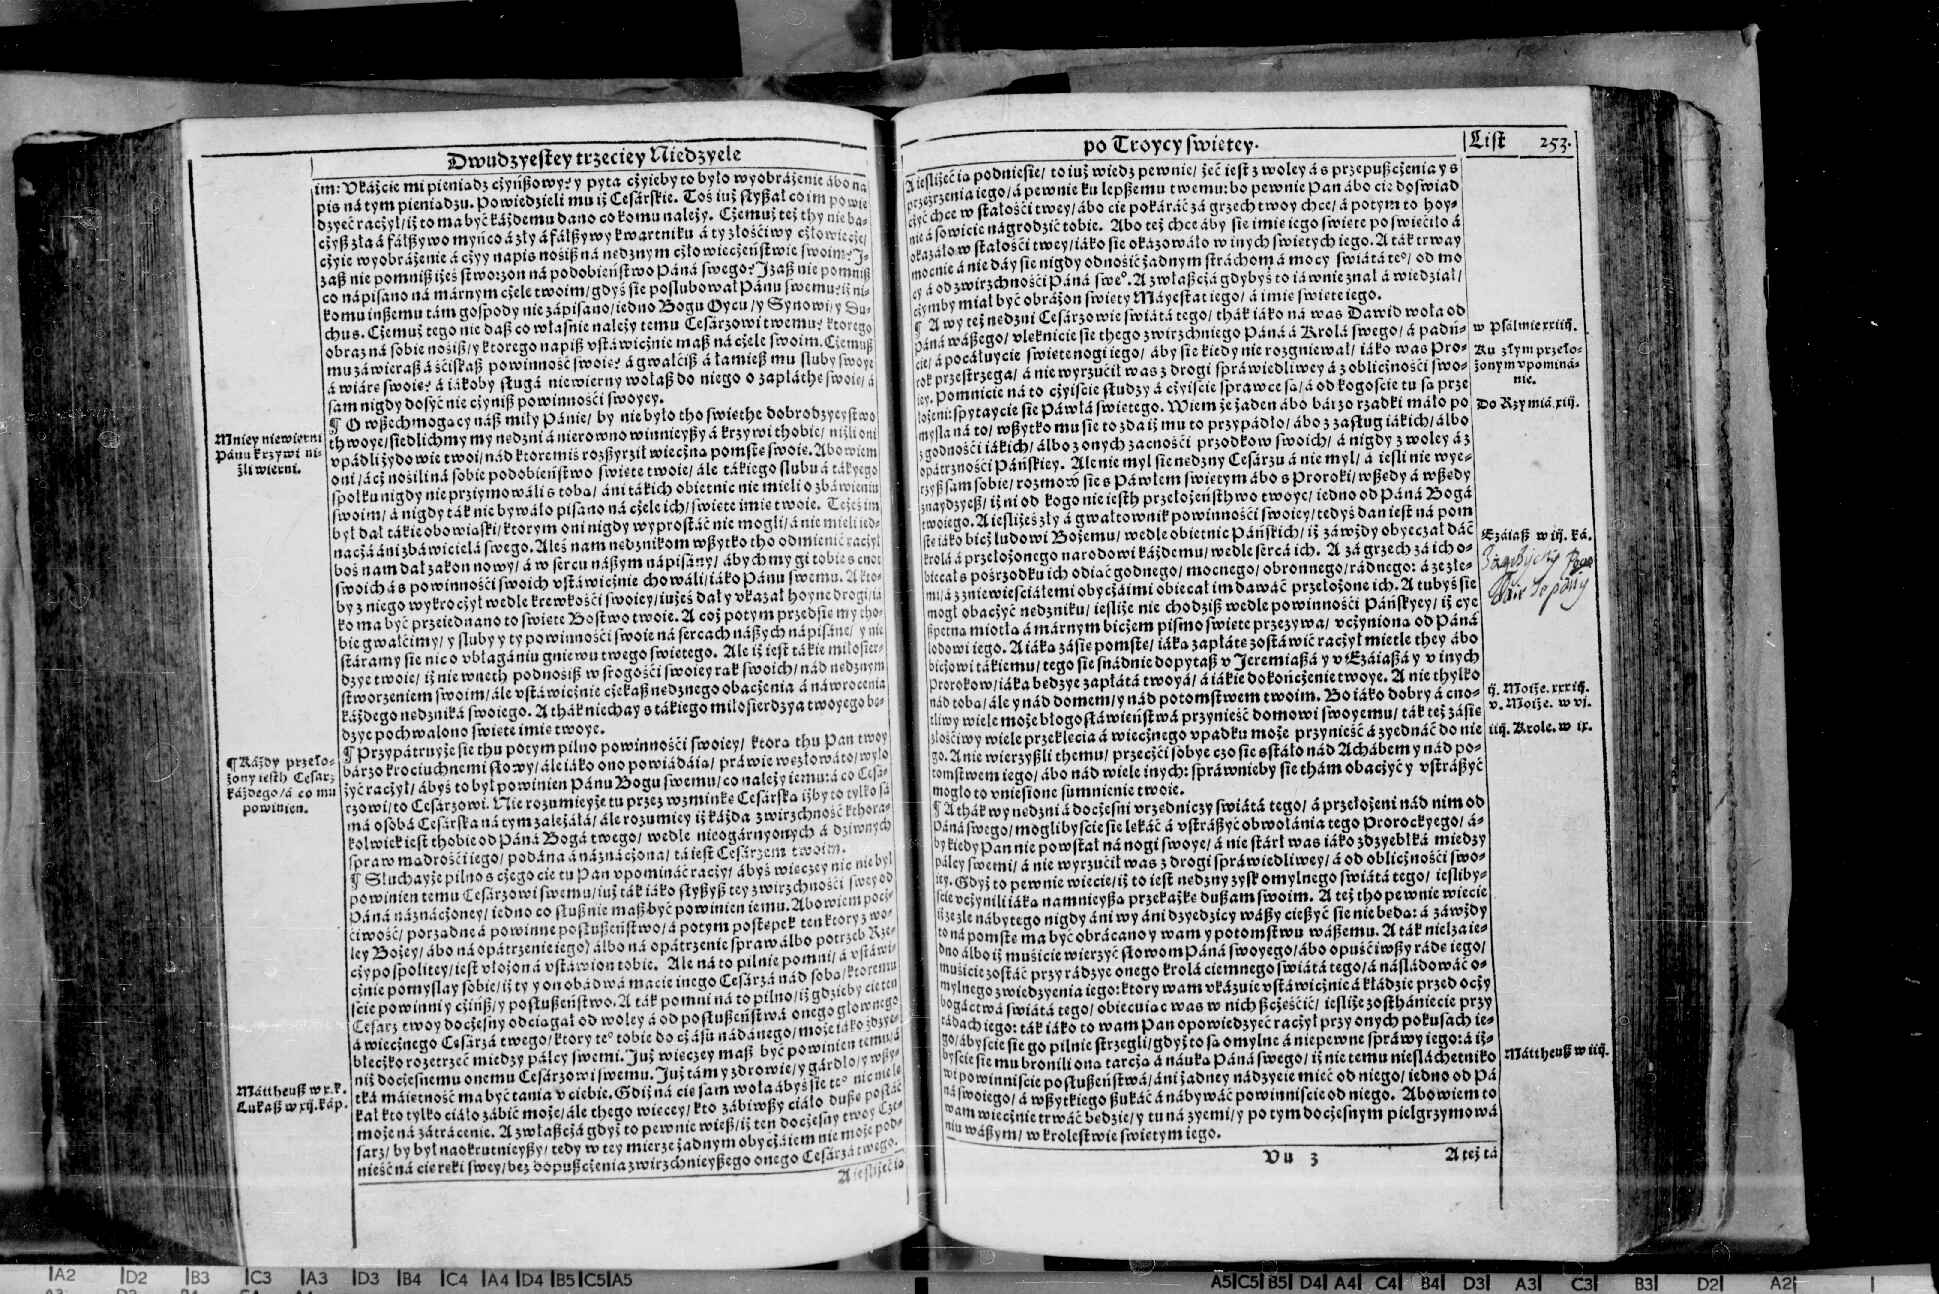 Dwudzyestey trzeciey Niedzyele
im: Vkażcie mi pieniądz cżyńßowy: y pyta cżyieby to było wyobrażenie ábo na
pis ná tym pieniądzu. Powiedzieli mu iż Cesárskie. Toś iuż słyßał co im powie
dzyeć racżył/ iż to ma być káżdemu dano co komu należy. Cżemuż też thy nie ba-
cżyß zła á fálßywo mynco á zły á fálßywy kwartniku á ty złośćiwy cżłowiecże/
cżyie wyobrażenie á cżyy napis nosiß ná nędznym cżłowiecżeństwie swoim? J-
zaß nie pomniß iżeś stworzon ná podobieństwo Páná swego? Jzaß nie pomniß
co nápisano ná márnym cżele twoim/ gdyś sie poslubował Pánu swemu: iż ni-
komu inßemu tám gospody nie zápisano/ iedno Bogu Oycu/ y Synowi/ y Du-
chu s. Cżemuż tego nie daß co własnie należy temu Cesárzowi twemu: ktorego
obraz ná sobie nosiß/ y ktorego napiß vstáwicżnie maß ná cżele swoim. Cżemuß
mu záwieraß á śćiskaß powinność swoię? á gwałćiß á łamieß mu sluby swoye
á wiáre swoię? á iákoby sługá niewierny wołaß do niego o zapłáthe swoię/ á
sam nigdy dosyć nie cżyniß powinnośći swoyey.
¶ O wßechmogący náß miły Pánie/ by nie było tho świethe dobrodzyeystwo
thwoye/ siedlichmy my nędzni á nierowno winnieyßy á krzywi thobie/ niżli oni
vpádli żydowie twoi/ nád ktoremiś rozßyrził wiecżną pomste swoię. Abowiem
oni/ ácż nosili ná sobie podobieństwo święte twoie/ ále tákiego slubu á tákyego
społku nigdy nie prziymowáli s tobą/ áni tákich obietnic nie mieli o zbáwieniu
swoim/ á nigdy ták nie bywáło pisano ná cżele ich/ święte imię twoie. Też eś im
był dał tákie obowiąski/ ktorym oni nigdy wyprostáć nie mogli/ á nie mieli ied-
nácżá áni zbáwicielá swego. Aleś nam nędznikom wßytko tho odmienić racżył
boś nam dał zakon nowy/ á w sercu náßym nápisány/ ábych my gi tobie s cnot
swoich á s powinnośći swoich vstáwicżnie chowáli/ iáko Pánu swemu. A kto-
by z niego wykrocżył wedle krewkośći swoiey/ iużeś dał y vkazał hoyne drogi/ iá
ko ma być przeiednano to święte Bostwo twoie. A coż potym przedsię my tho-
bie gwałćimy/ y sluby y ty powinnośći swoie ná sercach náßych nápisáne/ y nie
stáramy sie nic o vbłagániu gniewu twego świętego. Ale iż iest tákie miłosier-
dzye twoie/ iż nie wneth podnosiß w srogośći swoiey rąk swoich/ nád nędznym
stworzeniem swoim/ ále vstáwicżnie cżekaß nędznego obacżenia á náwrocenia
káżdego nędzniká swoiego. A thák niechay s tákiego miłosierdzya twoyego bę-
dzye pochwalono święte imię twoye.
¶ Przypátruyże sie thu potym pilno powinnośći swoiey/ ktorą thu Pan twoy
bárzo krociuchnemi słowy/ ále iáko ono powiádáią/ práwie węzłowáto/ wyło
żyć racżył/ ábyś to był powinien Pánu Bogu swemu/ co należy iemu: á co Cesá-
rzowi/ to Cesárzowi. Nie rozumieyże tu przez wzminkę Cesárską iżby to tylko sá
má osobá Cesárska ná tym zależáłá/ ále rozumiey iż káżda zwirzchność kthora-
kolwiek iest thobie od Páná Bogá twego/ wedle nieogárnyonych á dziwnych
spraw mądrośći iego/ podána á náznácżona/ tá iest Cesárzem twoim.
¶ Słuchayże pilno s cżego cie tu Pan vpomináć racży/ ábyś wiecżey nic nie był
powinien temu Cesárzowi swemu/ iuż ták iáko słyßyß tey zwirzchnośći swey od
Páná náznácżoney/ iedno co słußnie maß być powinien iemu. Abowiem pocż-
ćiwość/ porządne á powinne posłußeństwo/ á potym postępek ten ktory z wo-
ley Bożey/ ábo ná opátrzenie iego/ álbo ná opátrzenie spraw álbo potrzeb Rze-
cżypospolitey/ iest włożon á vstáwion tobie. Ale ná to pilnie pomni/ á vstáwi-
cżnie pomyslay sobie/ iż ty y on obádwá macie inego Cesárzá nád sobą/ ktoremu
ście powinni y cżiniß/ y posłußeństwo. A ták pomni ná to pilno/ iż gdzieby cie ten
Cesarz twoy docżesny odciągał od woley á od posłußeństwá onego głownego
á wiecżnego Cesárzá twego/ ktory te° tobie do cżásu nádánego/ może iáko zdzye-
błecżko rozetrzeć miedzy pálcy swemi. Już wiecżey maß być powinien temu/ á
niż docżesnemu onemu Cesárzowi swemu. Już tám y zdrowie/ y gárdło/ y wßy-
tká máiętność ma być tánia v ciebie. Gdiż ná cie sam woła ábyś sie te° nic nie lę
kał kto tylko ciáło zábić może/ ále thego wiecey/ kto zábiwßy ciáło dußę posłáć
może ná zátrácenie. A zwłaßcżá gdyż to pewnie wieß/ iż ten docżesny twoy Cze-
sarz/ by był naokrutnieyßy/ tedy w tey mierze żadnym obycżáiem nie może pod-
nieść ná cie ręki swey/ bez dopußcżenia zwirzchnieyßego onego Cesárzá twego.
A ieslizeć ią
Mniey niewierni
Pánu krzywi ni-
żli wierni.
¶ Káżdy przeło-
żony iesth Cesarz
káżdego/ á co mu
powinien.
Máttheuß w x. k.
Lukaß w xij. káp.
po Troycy świętey.
List 253.
A ieslizeć ią podniesie/ to iuż wiedz pewnie/ żeć iest z woley á s przepußcżenia y s
przezrzenia iego/ á pewnie ku lepßemu twemu: bo pewnie Pan ábo cie doświad
cżyć chce w stałośći twey/ ábo cie pokáráć zá grzech twoy chce/ á potym to hoy-
nie á sowicie nágrodzić tobie. Abo też chce áby sie imię iego święte poświeciło á
okazáło w stałośći twey/ iáko sie okázowáło w inych świętych iego. A ták trway
mocnie á nie day sie nigdy odnośić żadnym stráchom á mocy świátá te°/ od mo
cy á od zwirzchnośći Páná swe°. A zwłaßcżá gdybyś to iáwnie znał á wiedział/
cżymby miał być obráżon święty Máyestat iego/ á imię święte iego.
¶ A wy też nędzni Cesárzowie świátá tego/ thák iáko ná was Dawid woła od
Páná wáßego/ vlęknicie sie thego zwirzchniego Páná á Krolá swego/ á pádń-
cie/ á pocáłuycie święte nogi iego/ áby sie kiedy nie rozgniewał/ iáko was Pro-
rok przestrzega/ á nie wyrzućił was z drogi spráwiedliwey á z oblicżnośći swo-
iey. Pomnicie ná to cżyiście słudzy á cżyiście sprawce są/ á od kogoście tu są prze
łożeni: spytaycie sie Páwłá świętego. Wiem że żaden ábo bárzo rzadki máło po
mysla ná to/ wßytko mu sie to zda iż mu to przypádło/ ábo z zasług iákich/ álbo
z godnośći iákich/ álbo z onych zacnośći przodkow swoich/ á nigdy z woley á z
opátrznośći Páńskiey. Ale nie myl sie nędzny Cesárzu á nie myl/ á iesli nie wye-
rzyß sam sobie/ rozmow sie s Páwłem świętym ábo s Proroki/ wßędy á wßędy
znaydzyeß/ iż ni od kogo nie iesth przełożeństhwo twoye/ iedno od Páná Bogá
twoiego. A iesliześ zły á gwałtownik powinnośći swoiey/ tedyś dan iest ná pom
stę iáko bicż ludowi Bożemu/ wedle obietnic Páńskich/ iż záwżdy obyecżał dáć
krolá á przełożonego narodowi káżdemu/ wedle sercá ich. A zá grzech zá ich o-
biecał s pośrzodku ich odiąć godnego/ mocnego/ obronnego/ rádnego: á ze złe-
mi/ á z zniewieściáłemi obycżáimi obiecał im dáwáć przełożone ich. A tubyś sie
mogł obacżyć nędzniku/ ieslize nie chodziß wedle powinnośći Páńskyey/ iż cye
ßpetną miotłą á márnym bicżem pismo święte przezywa/ vcżyniona od Páná
ludowi iego. A iáką zásię pomstę/ iáką zapłátę zostáwić racżył mietle they ábo
bicżowi tákiemu/ tego sie snádnie dopytaß v Jeremiaßá y v Ezáiaßá y v inych
Prorokow/ iáka będzye zapłátá twoyá/ á iákie dokońcżenie twoye. A nie thylko
nád tobą/ ále y nád domem/ y nád potomstwem twoim. Bo iáko dobry á cno-
tliwy wiele może błogosłáwieństwá przynieść domowi swoyemu/ ták też zásię
złośćiwy wiele przeklecia á wiecżnego vpadku może przynieść á zyednáć do nie
go. A nie wierzyßli themu/ przecżći sobye czo sie ostáło nád Achábem y nád po-
tomstwem iego/ ábo nád wiele inych: spráwnieby sie thám obacżyć y vstráßyć
mogło to vniesione sumnienie twoie.
¶ A thák wy nędzni á docżesni vrzędniczy świátá tego/ á przełożeni nád nim od
Páná swego/ moglibyście sie lękáć á vstráßyć obwołánia tego Prorockyego/ á-
by kiedy Pan nie powstał ná nogi swoye/ á nie stárł was iáko zdzyebłká miedzy
pálcy swemi/ á nie wyrzućił was z drogi spráwiedliwey/ á od oblicżnośći swo-
iey. Gdyż to pewnie wiecie/ iż to iest nędzny zysk omylnego świátá tego/ iesliby-
ście vcżynili iáką namnieyßą przekázkę dußam swoim. A też tho pewnie wiecie
iż ze źle nábytego nigdy áni wy áni dzyedzicy wáßy cießyć sie nie będą: á záwżdy
to ná pomstę ma być obrácano y wam y potomstwu wáßemu. A ták nielza ie-
dno álbo iż muśicie wierzyć słowom Páná swoyego/ ábo opuśćiwßy rádę iego/
muśicie zostáć przy rádzye onego krolá ciemnego świátá tego/ á násládowáć o-
mylnego zwiedzyenia iego: ktory wam vkázuie vstáwicżnie á kłádzie przed ocży
bogáctwá świátá tego/ obiecuiąc was w nich ßcżęśćić/ ieslize zosthániecie przy
rádach iego: ták iáko to wam Pan opowiedzyeć racżył przy onych pokusach ie-
go/ ábyście sie go pilnie strzegli/ gdyż to są omylne á niepewne spráwy iego: á iż-
byście sie mu bronili oną tarcżą á náuką Páná swego/ iż nie temu nieslachetniko
wi powinniście posłußeństwá/ áni żadney nádzyeie mieć od niego/ iedno od Pá
ná swoiego/ á wßytkiego ßukáć á nábywáć powinniście od niego. Abowiem to
wam wiecżnie trwáć będzie/ y tu ná zyemi/ y po tym docżesnym pielgrzymowá
niu wáßym/ w krolestwie świętym iego.
Vu 3
A też tá
w Psálmie xxiiij.
Ku złym przeło-
żonym vpominá-
nie.
Do Rzymiá. xiij.
Ezáiaß w iij. ká.
ij. Moiże. xxxiij.
v. Moiże. w vj.
iij. Krole. w ix.
Máttheuß w iiij.
A5 C5 B5 D4 A4 C4 B4 D3 A3 C3 B3 D2 A2
A2 D2 B3 C3 A3 D3 B4 C4 A4 D4 B5 C5 A5